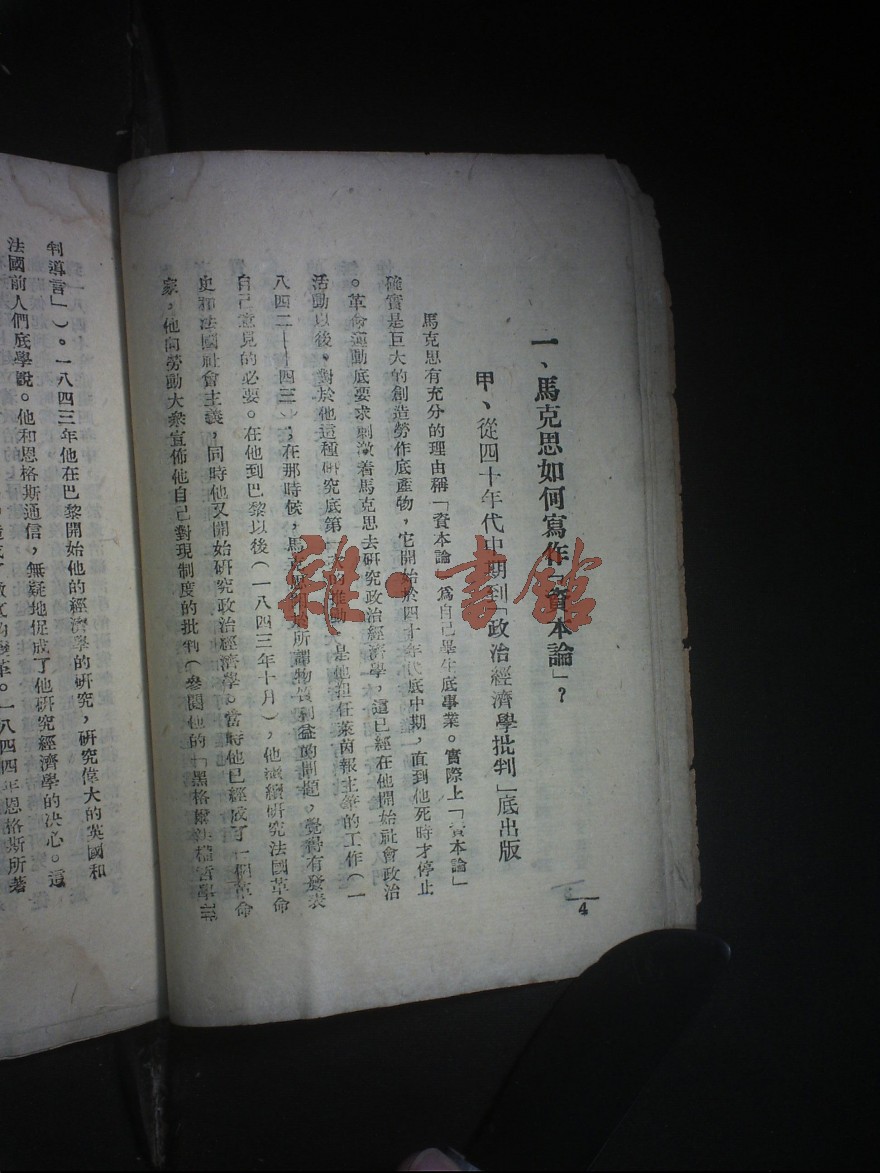 一、馬克思如何寫作「資本論」？
甲、從四十年代中期到「政治經濟學批判」底出版
馬克思有充分的理由稱「資本論」為自己畢生底事業。實際上「資本論」
確實是巨大的創造勞作底產物，它開始於四十年代底中期，直到他死時才停止
。革命運動底要求刺激着馬克思去研究政治經濟學，這已經在他開始社會政治
活動以後，對於他這種研究底第一次的推動，是他担任萊茵報主筆的工作（一
八四二—四三），在那時候，馬克思 所謂物質利益的問題，覺得有發表
自己意見的必要。在他到巴黎以後（一八四三年十月），他繼續研究法國革命
史和法國社會主義，同時他又開始研究政治經濟學。當時他已經成了一個革命
家，他向勞動大衆宣佈他自己對現制度的批判（參閱他的「黑格爾法權哲學批
4
判導言」）。一八四三年他在巴黎開始他的經濟學的研究，研究偉大的英國和
法國前人們底學說。他和恩格斯通信，無疑地促成了他研究經濟學的决心。這
一八四四年恩格斯所著
雜·書館